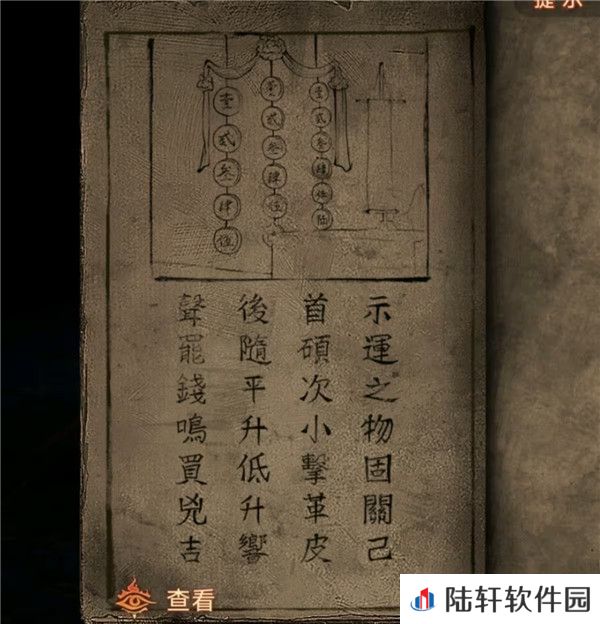 提示
壹貳叁肆伍
壹貳叁肆伍
壹貳叁肆伍陆
示運之物固關己
首碩次小擊革皮
後隨平升低升響
聲罷錢鳴買兇吉
查看
陆轩软件园